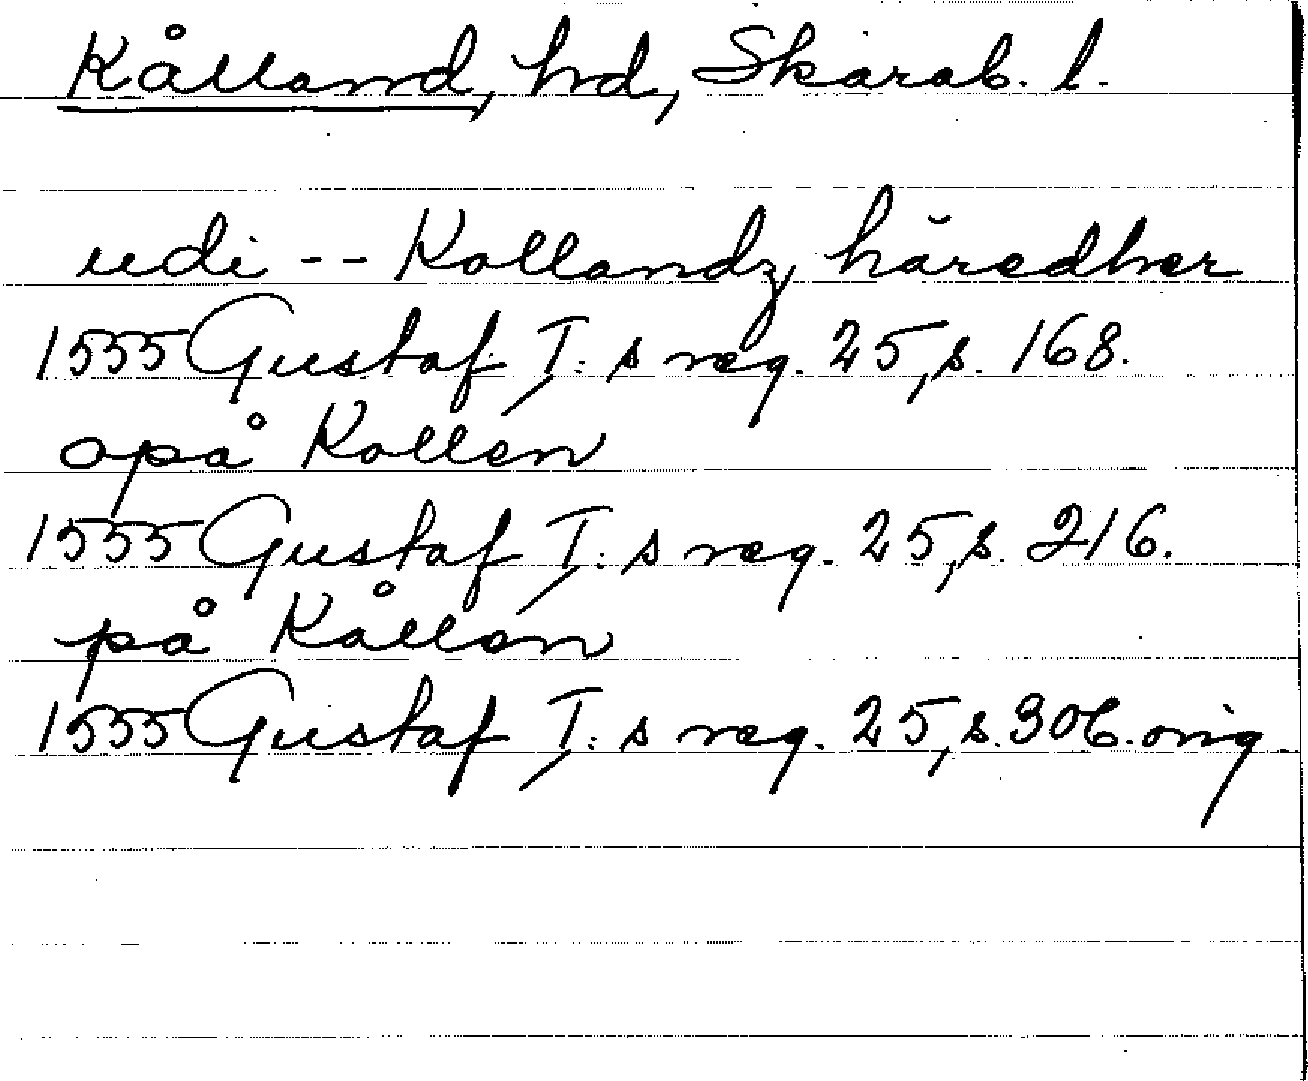 Kålland, hd, Skarab. l.
udi -- Kollandz häredher
1555 Gustaf I:s reg. 25, s. 168.
opå Kollen
1555 Gustaf I:s reg. 25, s. 216.
på Kållen
1555 Gustaf I:s reg. 25, s. 306. orig.